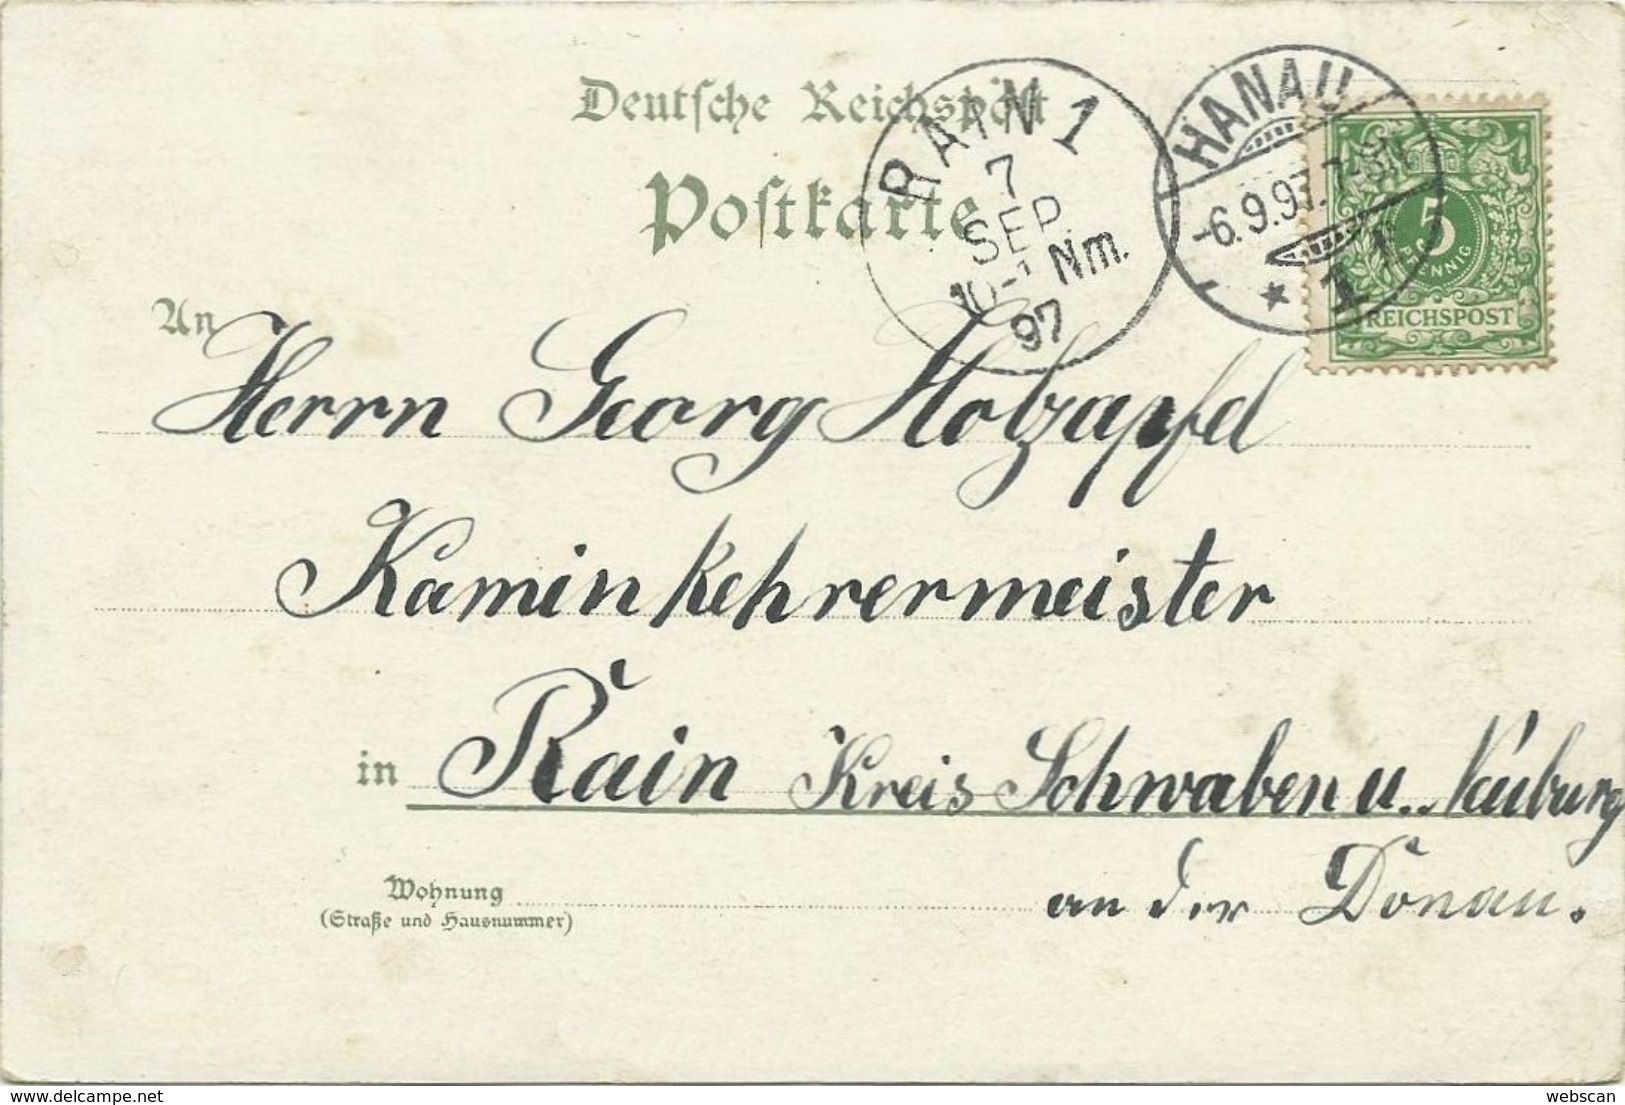 Deutsche Reichspost
Postkarte
RAIN 1
7
SEP.
10-1 Nm.
97
HANAU
6.9.97. 7-8N.
* 1 r
5
PFENNIG
REICHSPOST
An
Herrn Georg Holzapfel
Kaminkehrermeister
in Rain Kreis Schwaben u. Neuburg
an der Donau.
Wohnung
(Straße und Hausnummer)
www.delcampe.net
webscan